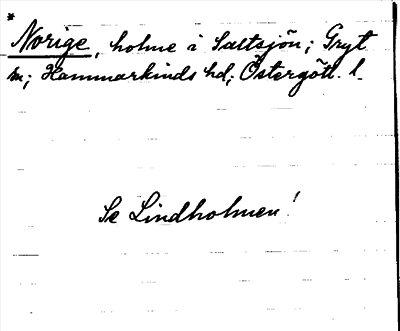 *
Norige, holme i Saltsjön; Gryt
sn; Hammarkinds hd; Östergötl. l.
Se Lindholmen!